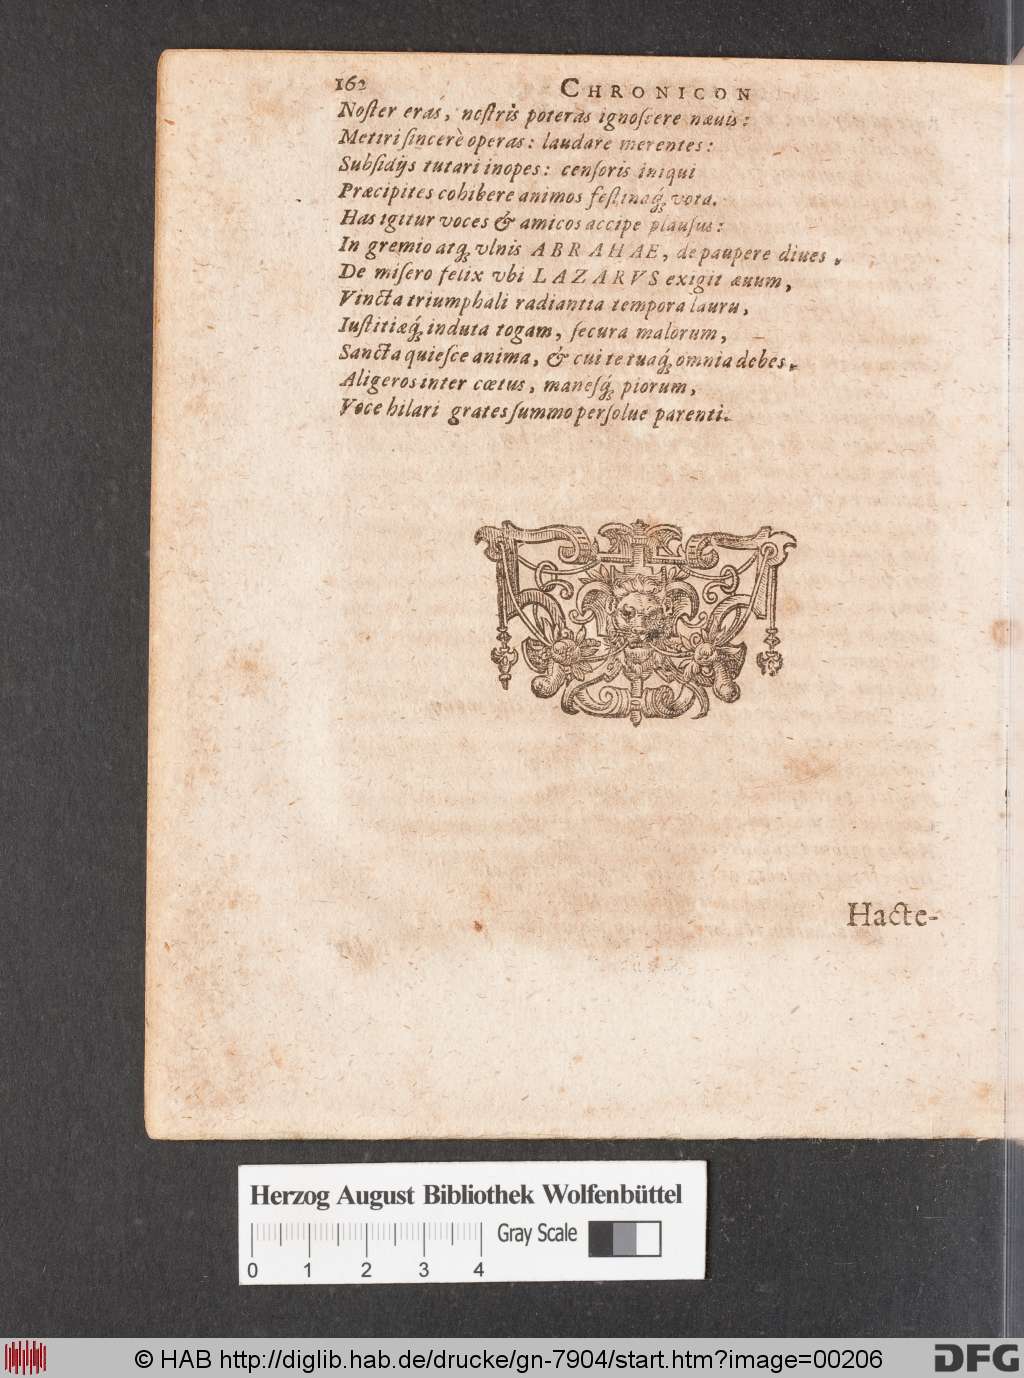 162 CHRONICON
Noſter eras, noſtris poteras ignoſcere nævis:
Metiri ſincerè operas: laudare merentes:
Subſidijs tutari inopes: cenſoris iniqui
Præcipites cohibere animos feſtinaq́ʒ vota.
Has igitur voces & amicos accipe plauſus:
In gremio atqʒ vlnis ABRAHAE, de paupere diues,
De miſero felix vbi LAZARVS exigit æuum,
Vincta triumphali radiantia tempora lauru,
Iuſtitiæq́ʒ induta togam, ſecura malorum,
Sancta quieſce anima, & cui te tuaq́ʒ omnia debes,
Aligeros inter cœtus, maneſq́ʒ piorum,
Voce hilari grates ſummo perſolue parenti.
Hacte-
Herzog August Bibliothek Wolfenbüttel
Gray Scale
0 1 2 3 4
© HAB http://diglib.hab.de/drucke/gn-7904/start.htm?image=00206
DFG